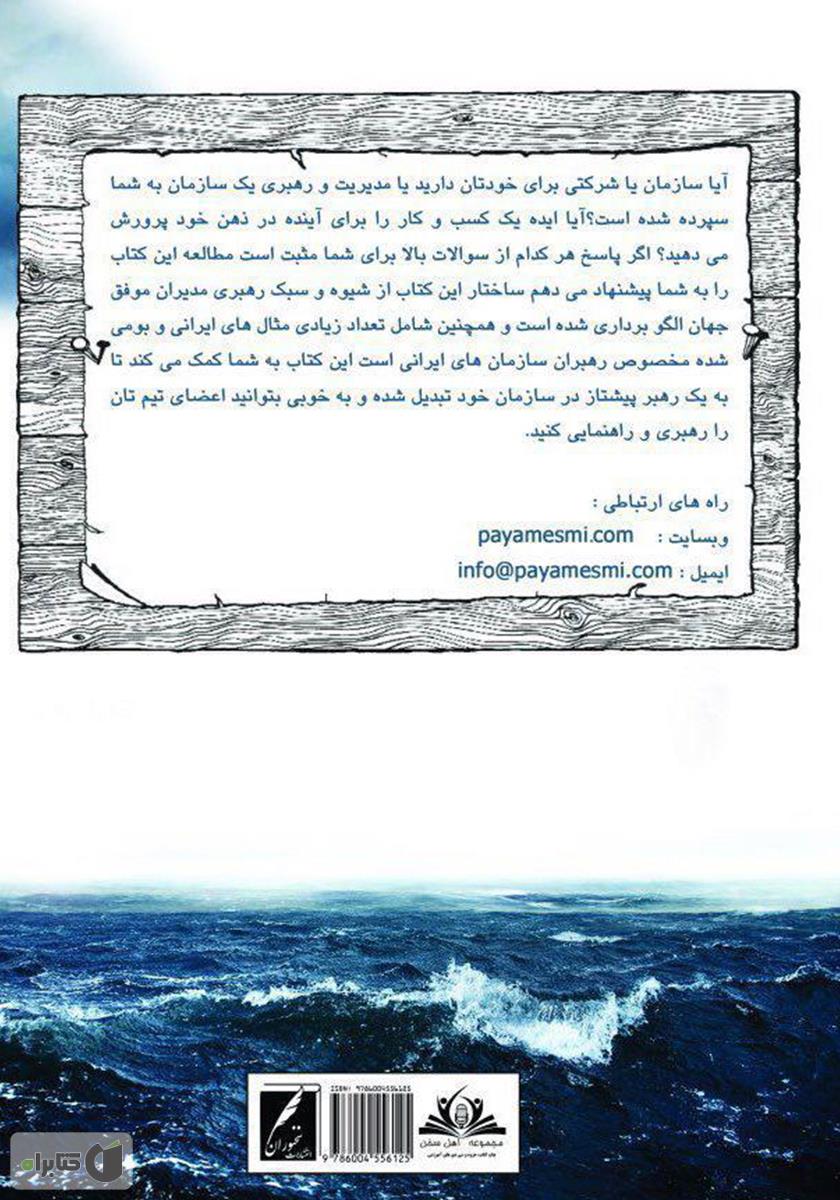 آیا سازمان یا شرکتی برای خودتان دارید یا مدیریت و رهبری یک سازمان به شما
سپرده شده است؟آیا ایده یک کسب و کار را برای آینده در ذهن خود پرورش
می دهید؟ اگر پاسخ هر کدام از سوالات بالا برای شما مثبت است مطالعه این کتاب
را به شما پیشنهاد می دهم ساختار این کتاب از شیوه و سبک رهبری مدیران موفق
جهان الگو برداری شده است و همچنین شامل تعداد زیادی مثال های ایرانی و بومی
شده مخصوص رهبران سازمان های ایرانی است این کتاب به شما کمک می کند تا
به یک رهبر پیشتاز در سازمان خود تبدیل شده و به خوبی بتوانید اعضای تیم تان
را رهبری و راهنمایی کنید.
راه های ارتباطی :
وبسایت : payamesmi.com
ایمیل : info@payamesmi.com
ISBN: 9786004556125
9 786004 556125
انتشارات سخنوران
مجموعه اهل سخن
کتابراه